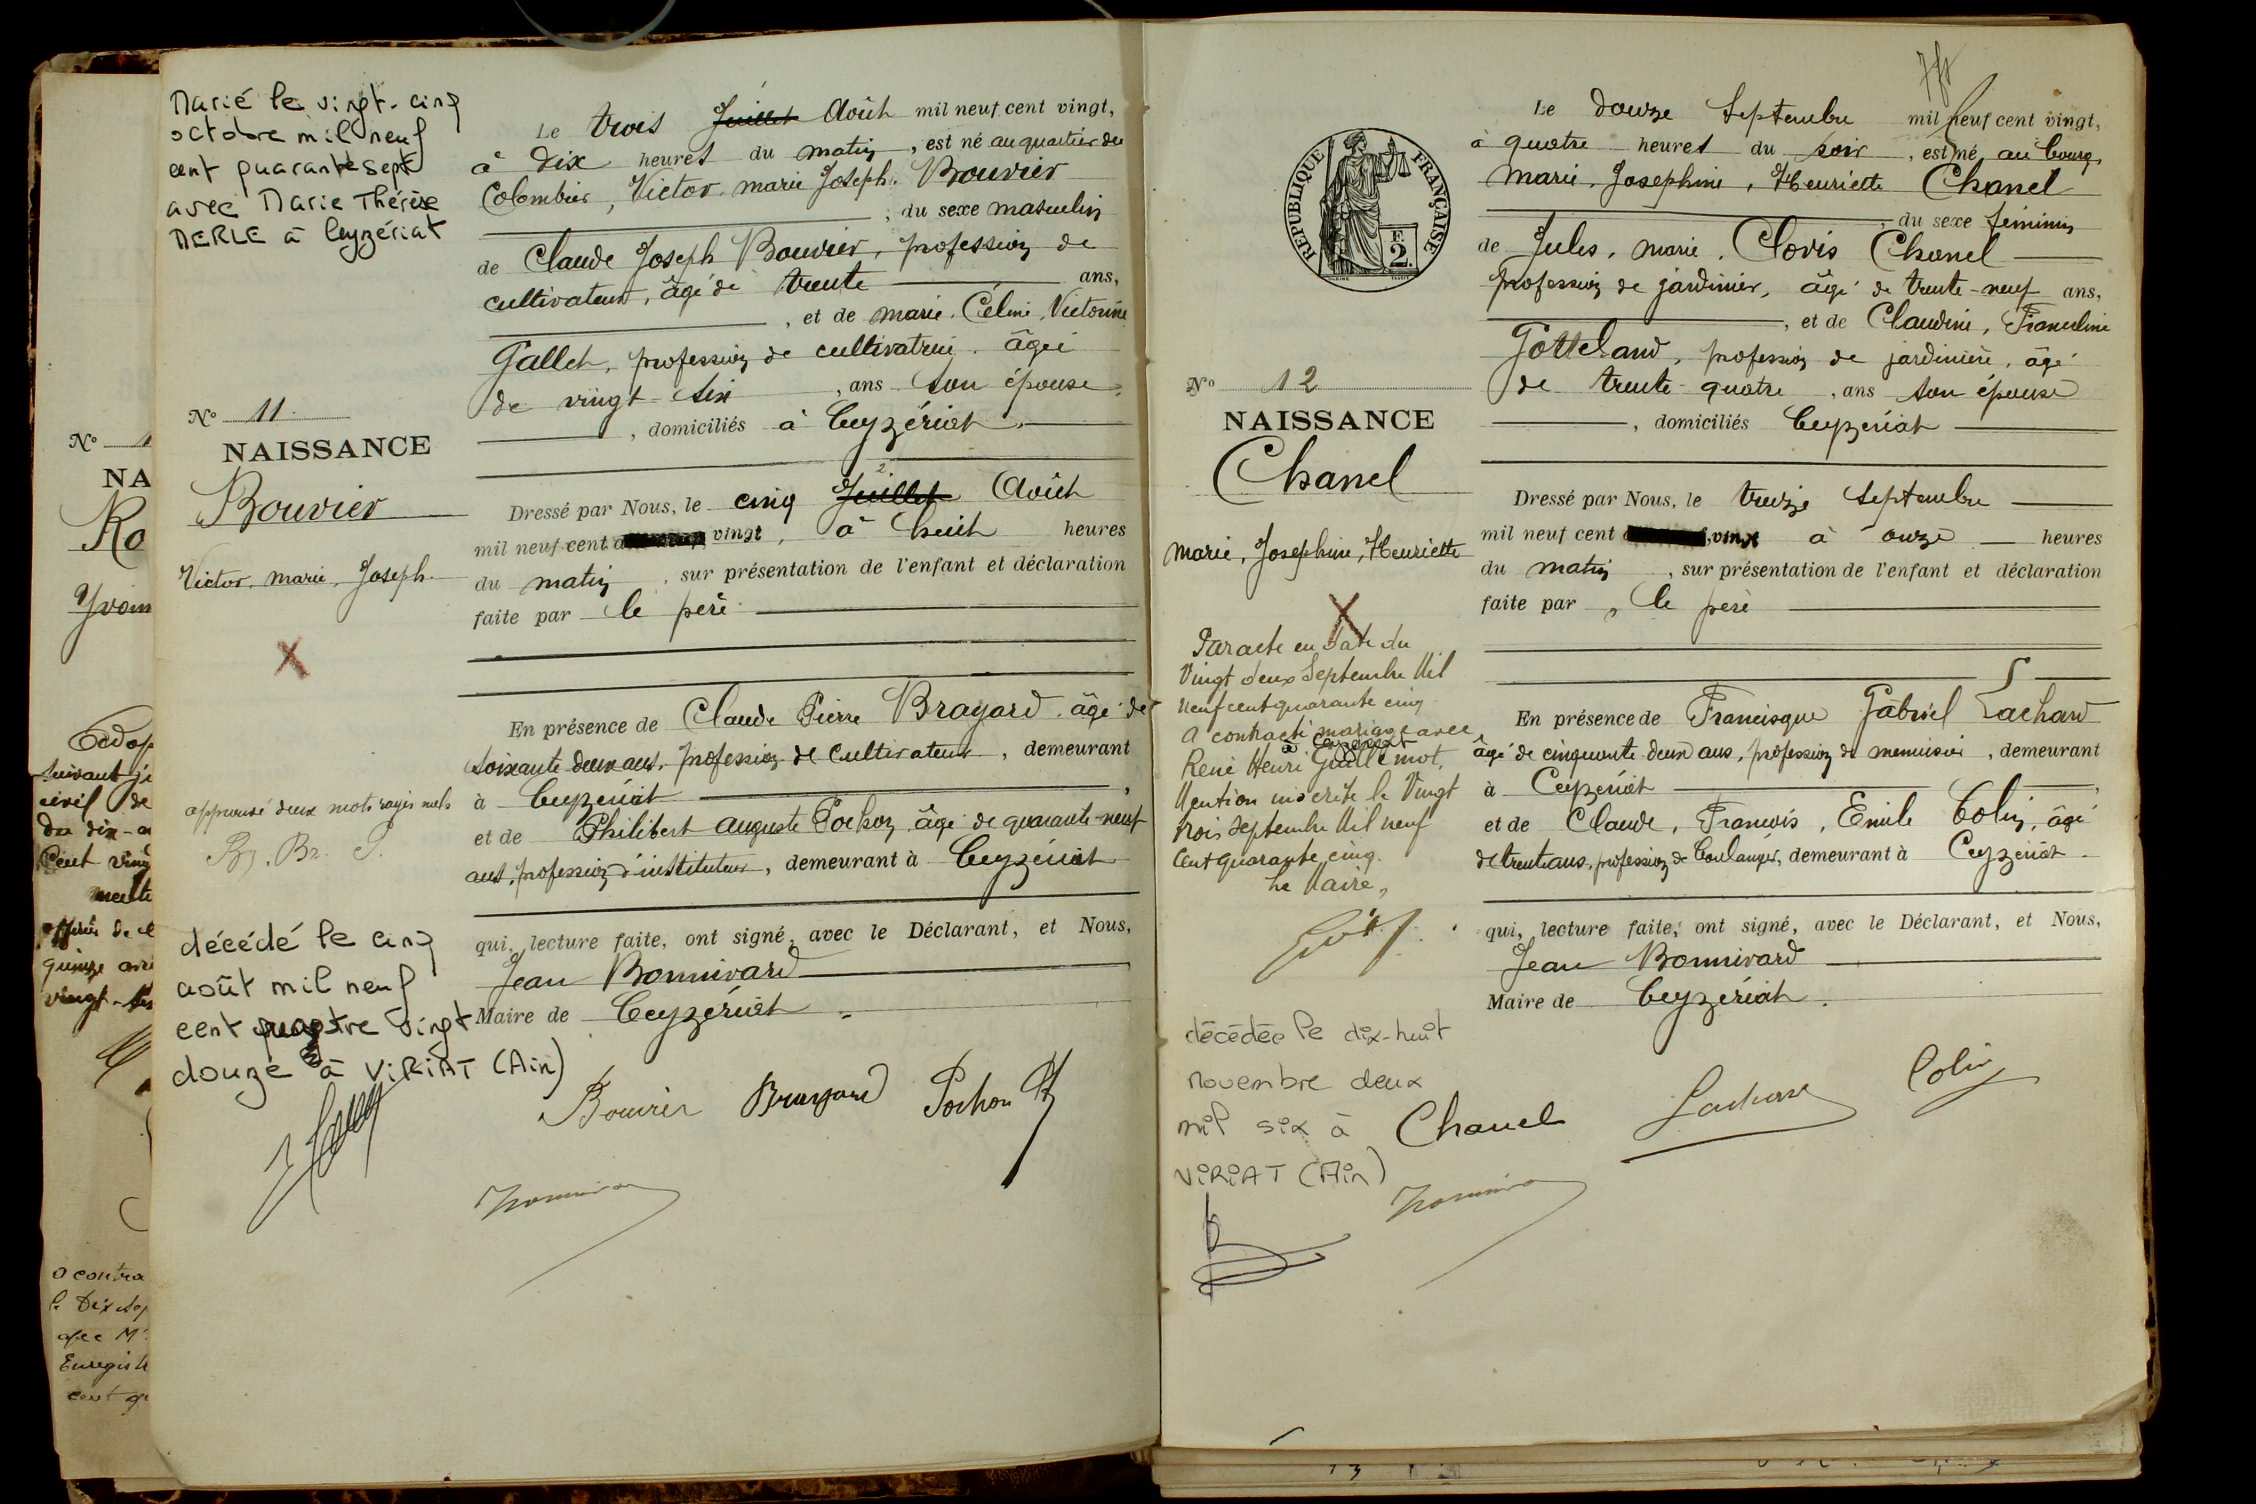 Marié le vingt-cinq
octobre mil neuf
cent quarante sept
avec Marie Thérèse
MERLE à Ceyzériat
Nº 11
NAISSANCE
Bouvier
Victor, marie, Joseph
X
approuvé deux mots rayés nuls
décédé le cinq
août mil neuf
cent quatre vingt
douze à VIRIAT (Ain)
Le trois Juillet Août mil neuf cent vingt,
à dix heures du matin, est né au quartier du
Colombier, Victor, marie Joseph, Bouvier
, du sexe masculin
de Claude Joseph Bouvier, profession de
cultivateur, âgé de trente ans,
, et de marie, Céline, Victorine
Gallet, profession de cultivatrice, âgée
de vingt-six, ans son épouse,
, domiciliés à Ceyzériat
Dressé par Nous, le cinq Juillet Août
mil neuf cent vingt, à huit heures
du matin, sur présentation de l'enfant et déclaration
faite par le père
En présence de Claude Pierre Brayard, âgé de
soixante deux ans, profession de cultivateur, demeurant
à Ceyzériat,
et de Philibert Auguste Pochon, âgé de quarante-neuf
ans, profession d'instituteur, demeurant à Ceyzériat
qui, lecture faite, ont signé, avec le Déclarant, et Nous,
Jean Bonnivard
Maire de Ceyzériat
Bouvier Brayard Pochon
Nº 1
NA
Ro
suivant
civil de
vingt
quinze
a contra
avec M
RÉPUBLIQUE FRANÇAISE
F.
2
Nº 12
NAISSANCE
Chanel
Marie, Josephine, Henriette
X
Par acte en date du
Vingt deux Septembre Mil
neuf cent quarante cinq
a contracté mariage avec,
à Ceyzériat
René Henri Guillemot.
Mention inscrite le Vingt
trois Septembre Mil neuf
Cent quarante cinq.
Le Maire,
décédée le dix-huit
novembre deux
mil six à
VIRIAT (Ain)
Le douze Septembre mil neuf cent vingt,
à quatre heures du soir, est né au bourg,
Marie, Josephine, Henriette Chanel
, du sexe féminin
de Jules, marie, Clovis Chanel
profession de jardinier, âgé de trente-neuf ans,
, et de Claudine, Franceline
Gotteland, profession de jardinière, âgé
de trente-quatre, ans son épouse
, domiciliés Ceyzériat
Dressé par Nous, le treize Septembre
mil neuf cent vingt à onze heures
du matin, sur présentation de l'enfant et déclaration
faite par, le père
En présence de Francisque Gabriel Lachard
âgé de cinquante deux ans, profession de menuisier, demeurant
à Ceyzériat,
et de Claude, François, Emile Colin, âgé
de trente ans, profession de boulanger, demeurant à Ceyzériat
qui, lecture faite, ont signé, avec le Déclarant, et Nous,
Jean Bonnivard
Maire de Ceyzériat.
Chanel Lachard Colin